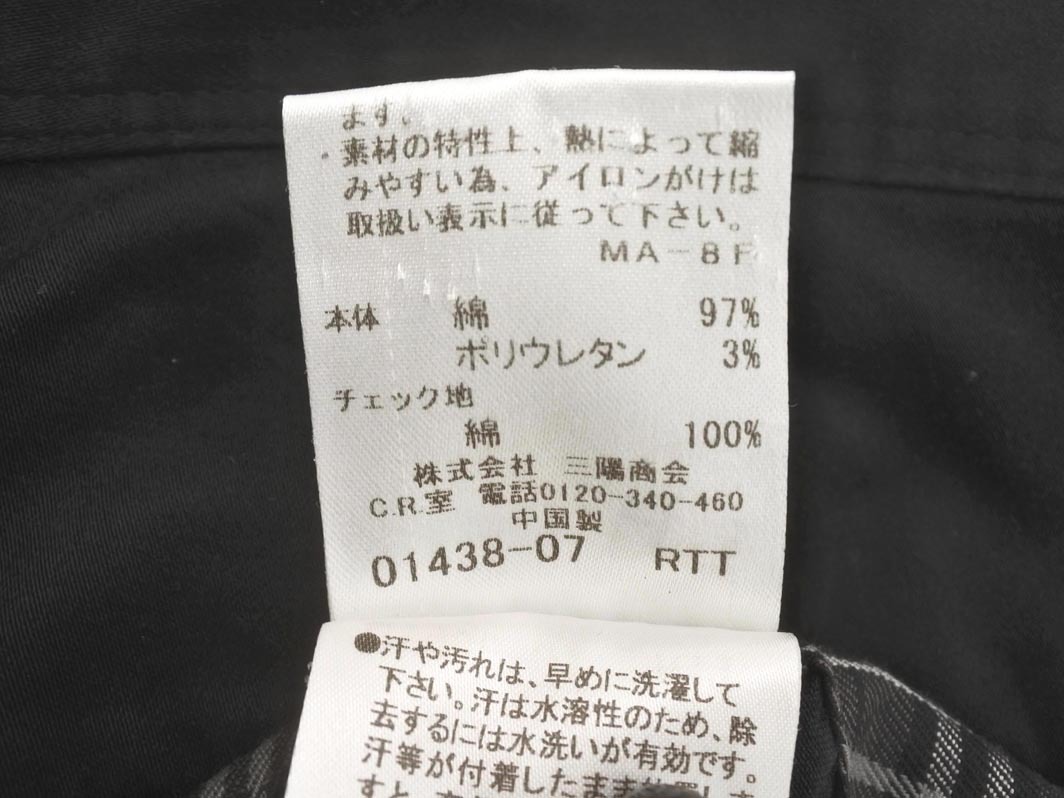 ます。
・素材の特性上、熱によって縮
みやすい為、アイロンがけは
取扱い表示に従って下さい。
MA-8F
本体 綿 97%
ポリウレタン 3%
チェック地
綿 100%
株式会社 三陽商会
C.R.室 電話0120-340-460
中国製
01438-07 RTT
●汗や汚れは、早めに洗濯して
下さい。汗は水溶性のため、除
去するには水洗いが有効です。
汗等が付着したまま
すと